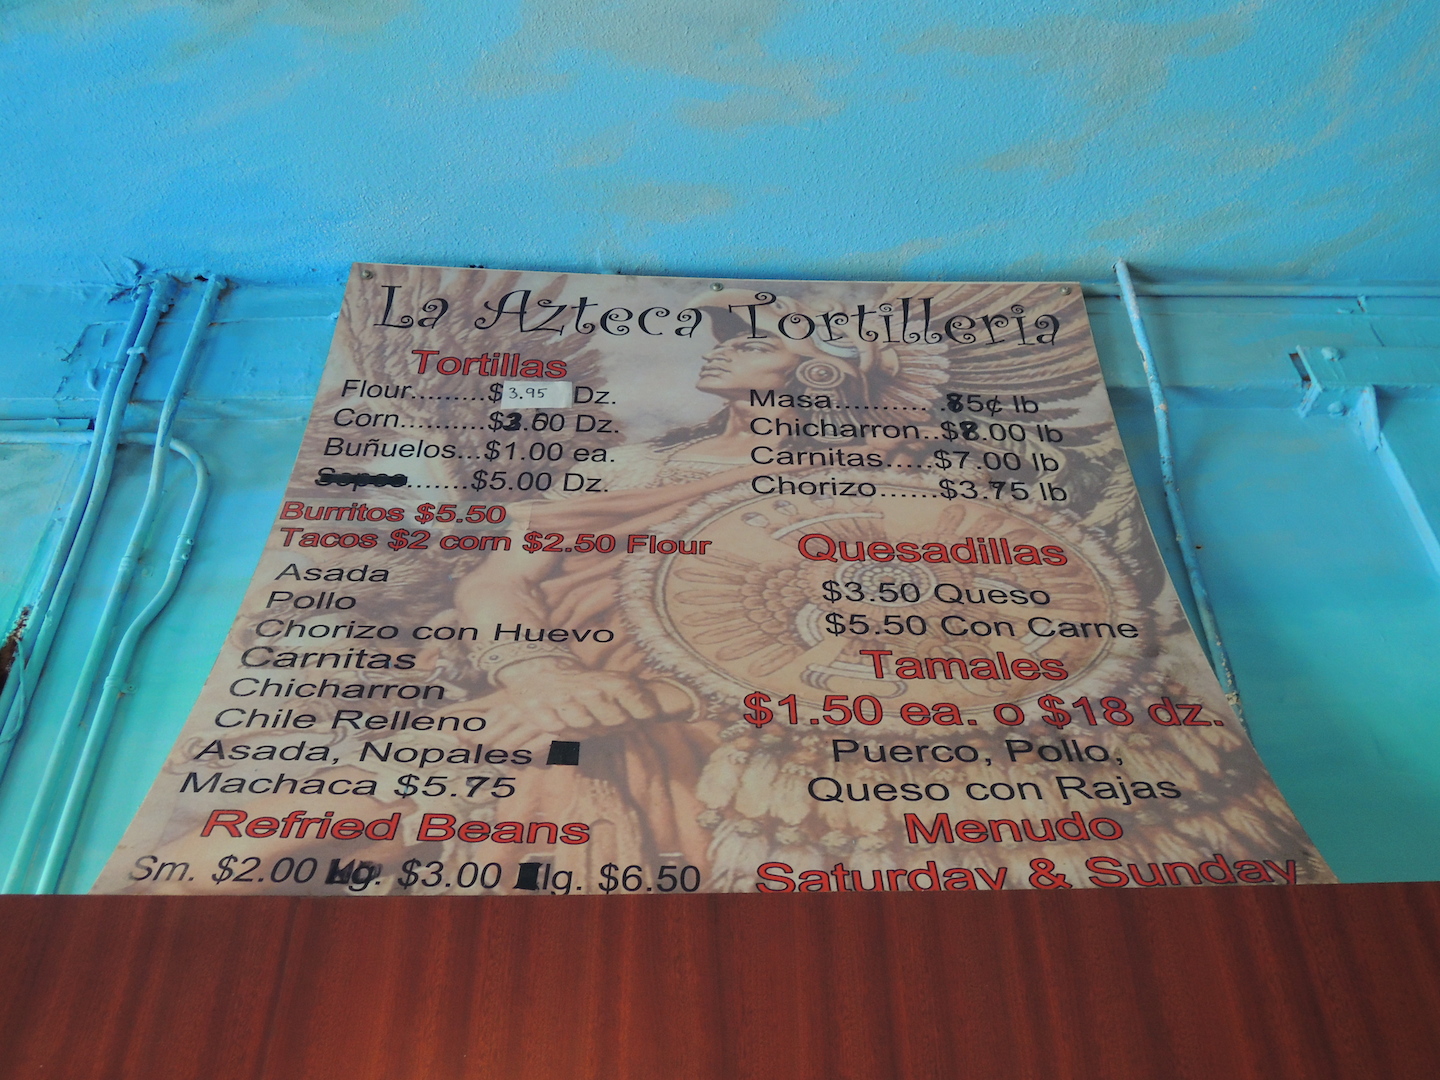 La Azteca Tortilleria
Tortillas
Flour.........$3.95 Dz.
Corn..........$ .60 Dz.
Buñuelos...$1.00 ea.
.......$5.00 Dz.
Masa.......... .85¢ lb
Chicharron..$8.00 lb
Carnitas.....$7.00 lb
Chorizo......$3.75 lb
Burritos $5.50
Tacos $2 corn $2.50 Flour
Asada
Pollo
Chorizo con Huevo
Carnitas
Chicharron
Chile Relleno
Asada, Nopales
Machaca $5.75
Refried Beans
Sm. $2.00 $3.00 lg. $6.50
Quesadillas
$3.50 Queso
$5.50 Con Carne
Tamales
$1.50 ea. o $18 dz.
Puerco, Pollo,
Queso con Rajas
Menudo
Saturday & Sunday